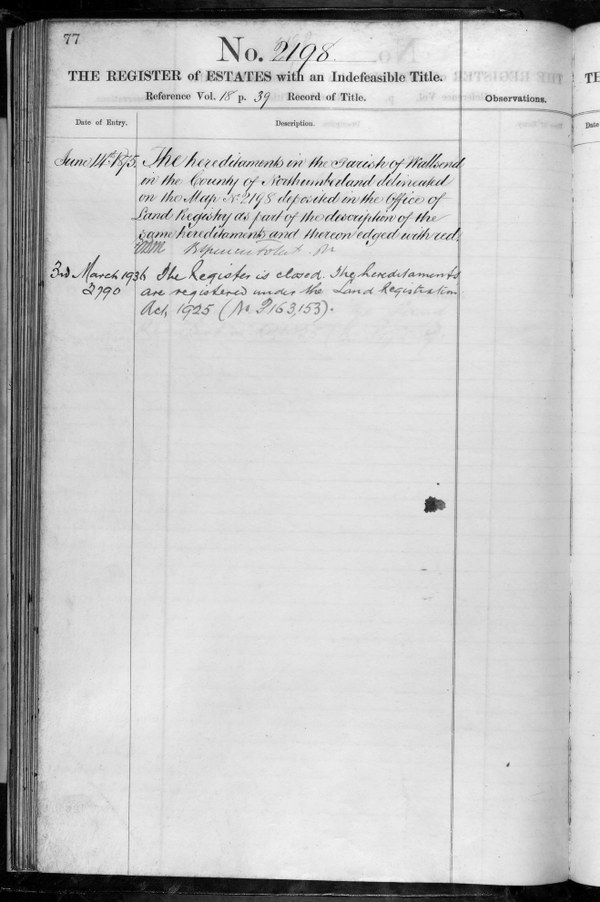 77
No. 2198
THE REGISTER of ESTATES with an Indefeasible Title.
Reference Vol. 18 p. 39 Record of Title.
Observations.
Date of Entry.
Description.
June 14th 1875. The hereditaments in the Parish of Wallsend
in the County of Northumberland delineated
on the Map No. 2198 deposited in the Office of
Land Registry as part of the description of the
same hereditaments and thereon edged with red.
3rd March 1936 The Register is closed. The hereditaments
2790 are registered under the Land Registration
Act, 1925 (No. P163,153).
TH
Da